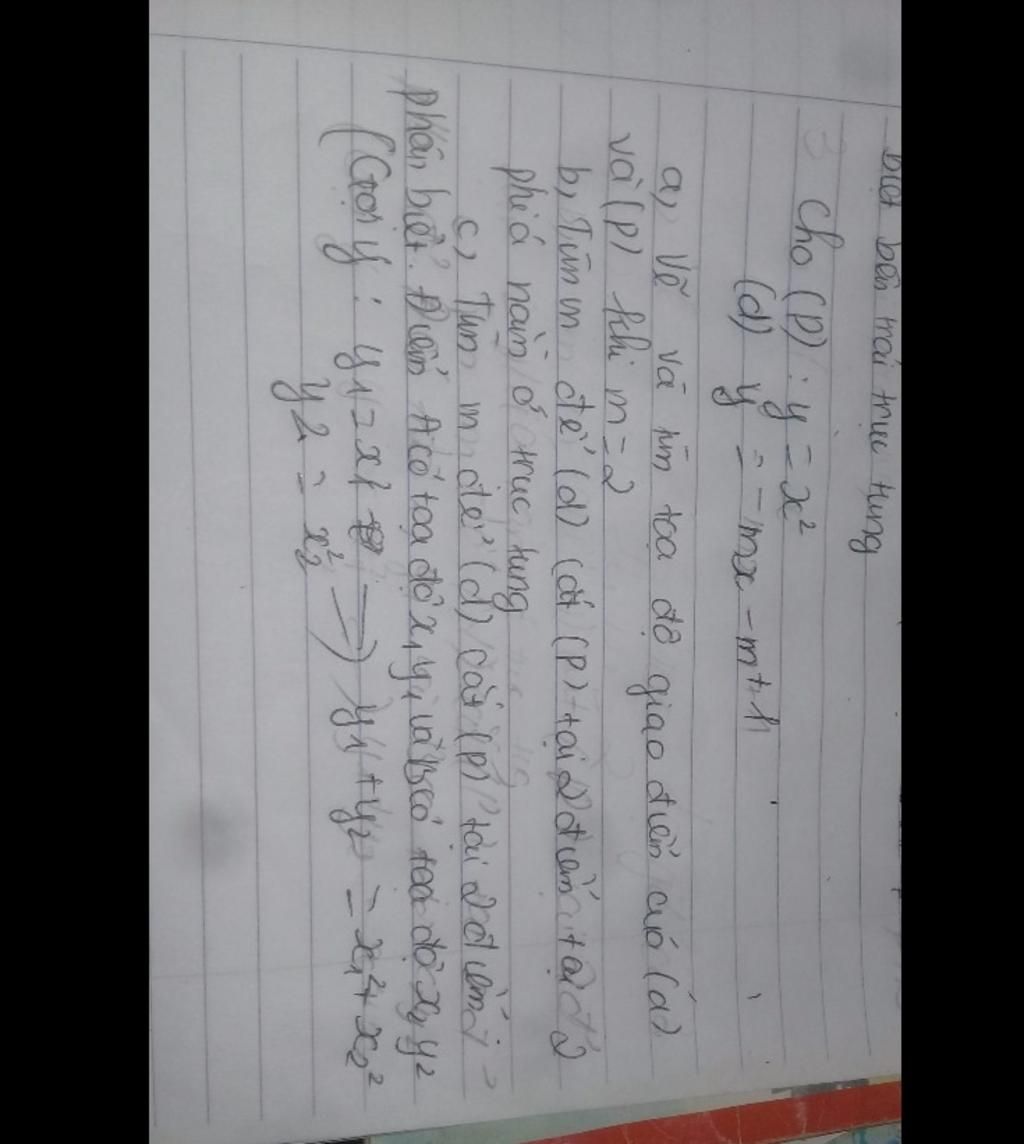 biệt bên trái trục tung
3 Cho (P) : y = x²
(d) y = -mx - m + 1
a, Vẽ và tìm tọa độ giao điểm của (d)
và (P) khi m = 2
b, Tìm m để (d) cắt (P) tại 2 điểm tại 2
phía nằm ở trục tung
c, Tìm m để (d) cắt (P) tại 2 điểm
phân biệt. Điểm A có tọa độ x₁ y₁ và B có toạ độ x₂ y₂
(Gợi ý : y₁ = x₁² → y₁ + y₂ = x₁² + x₂²
y₂ = x₂²